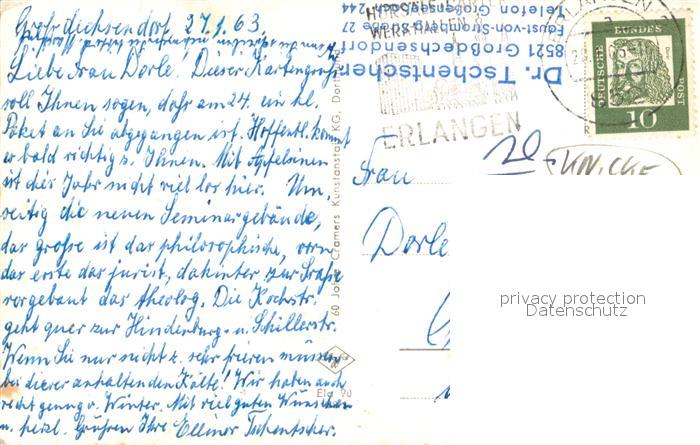 Großdechsendorf 27.1.63.
Liebe Frau Dorle. Dieser Kartengruß
soll Ihnen sagen, daß am 24. ein kl.
Paket an Sie abgegangen ist. Hoffentl. kommt
er bald richtig z. Ihnen. Mit Apfelsinen
ist dies Jahr nicht viel los hier. Um-
seitig die neuen Seminargebäude,
das große ist das philosophische, vorn
das erste das jurist., dahinter zur Straße
vorgebaut das theolog. Die Kochstr.
geht quer zur Hindenburg- u. Schillerstr.
Wenn Sie nur nicht z. sehr frieren müssen
bei dieser anhaltenden Kälte! Wir haben auch
recht genug v. Winter. Mit viel guten Wünschen
u. herzl. Grüßen Ihre Ellinor Tschentscher.
60 Jahre Cramers Kunstanstalt KG, Dortmund
Cra
Dr. Tschentscher
8521 Großdechsendorf
Faust-von-Stromberg-Straße 27
Telefon Großenseebach 7244
ERLANGEN
DEUTSCHE BUNDESPOST
10
Frau
Dorle
privacy protection
Datenschutz